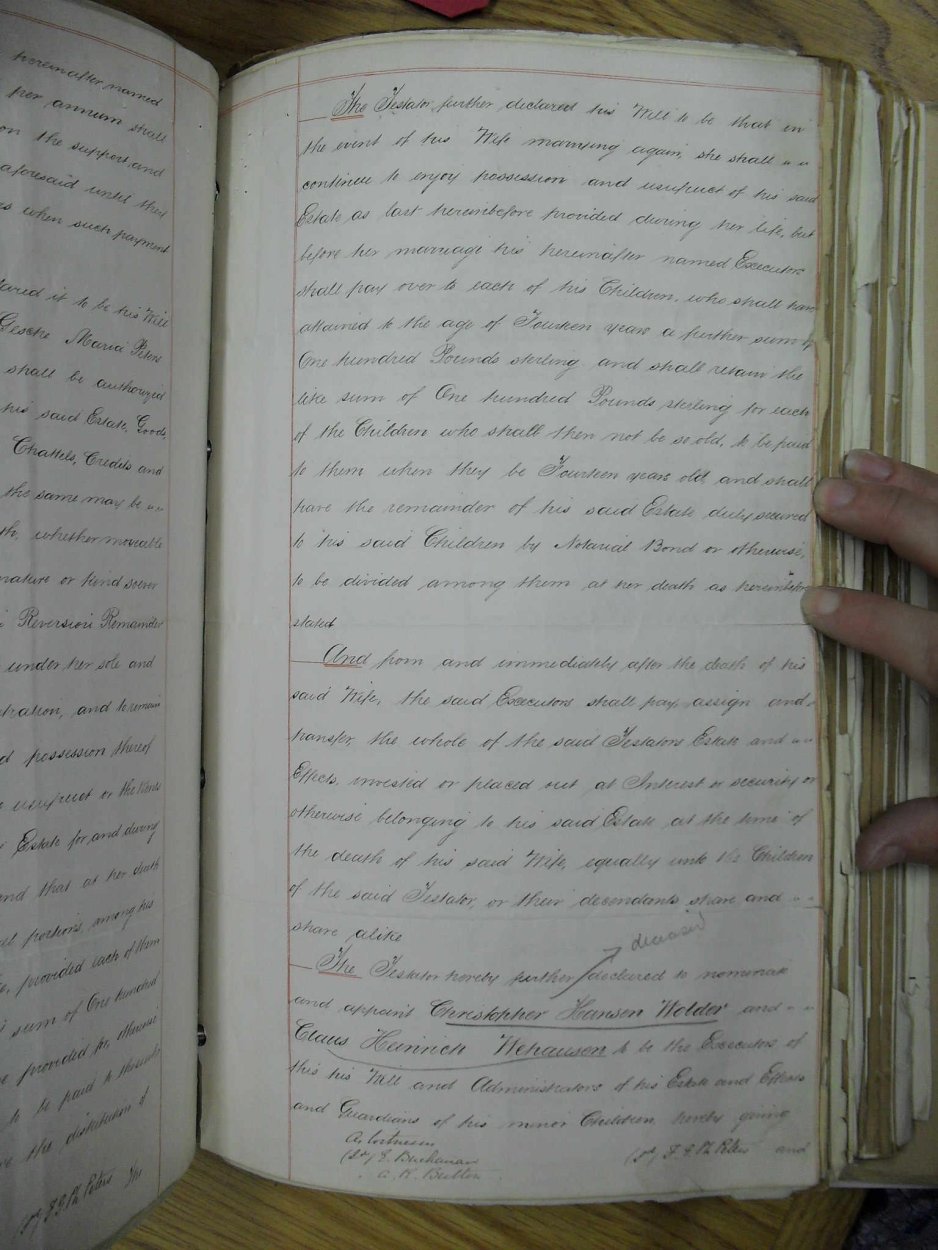 hereinafter named
per annum shall
on the support and
aforesaid until they
s when such payment
ared it to be his Will
Gesche Maria Peters
shall be authorized
his said Estate, Goods,
Chattels, Credits and
the same may be "
th, whether movable
nature or kind soever
Reversion Remainder
under her sole and
tration, and to remain
d possession thereof
usufruct or the
Estate for and during
and that at her death
portions, among his
provided each of them
sum of One hundred
provided for, otherwise
to be paid to them
the distribution of
F. G. Ph. Peters
The Testator, further declared his Will to be that in
the event of his Wife marrying again, she shall " "
continue to enjoy possession and usufruct of his said
Estate as last hereinbefore provided during her life, but
before her marriage his hereinafter named Executors
shall pay over to each of his Children, who shall have
attained to the age of Fourteen years a further sum of
One hundred Pounds sterling and shall retain the
like sum of One hundred Pounds sterling for each
of the Children who shall then not be so old, to be paid
to them when they be Fourteen years old, and shall
have the remainder of his said Estate duly secured
to his said Children by Notarial Bond or otherwise,
to be divided among them at her death as hereinbefore
stated
And from and immediately after the death of his
said Wife, the said Executors shall pay, assign and "
transfer, the whole of the said Testators Estate and " "
Effects, invested or placed out at Interest or security or
otherwise belonging to his said Estate at the time of
the death of his said Wife, equally unto the Children
of the said Testator, or their decendants share and " "
share alike
deceased
The Testator hereby further declared to nominate
and appoint Christopher Hansen Wolder and " "
Claus Heinrich Wehausen to be the Executors of
this his Will and Administrators of his Estate and Effects
and Guardians of his minor Children hereby giving
As witnesses
(sd) E. Buchanan
(sd) F. G. Ph. Peters and
A. R. Butler